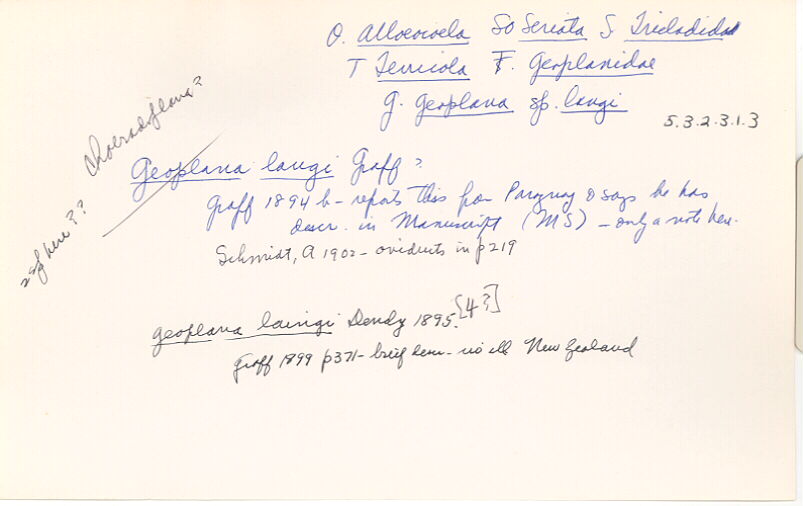 O. Alloeocoela So Seriata S. Tricladida
T Terricola F. Geoplanidae
G. Geoplana sp. langi
5.3.2.3.1.3
Choeradoplana?
2 sp here??
Geoplana langi Graff?
Graff 1894 b - reports this from Paraguay & says he has
descr. in Manuscript (MS) - only a note here.
Schmidt, A 1902 - oviducts in p 219
geoplana laingi Dendy 1895. [4?]
Graff 1899 p371 - brief descr - no ill New Zealand